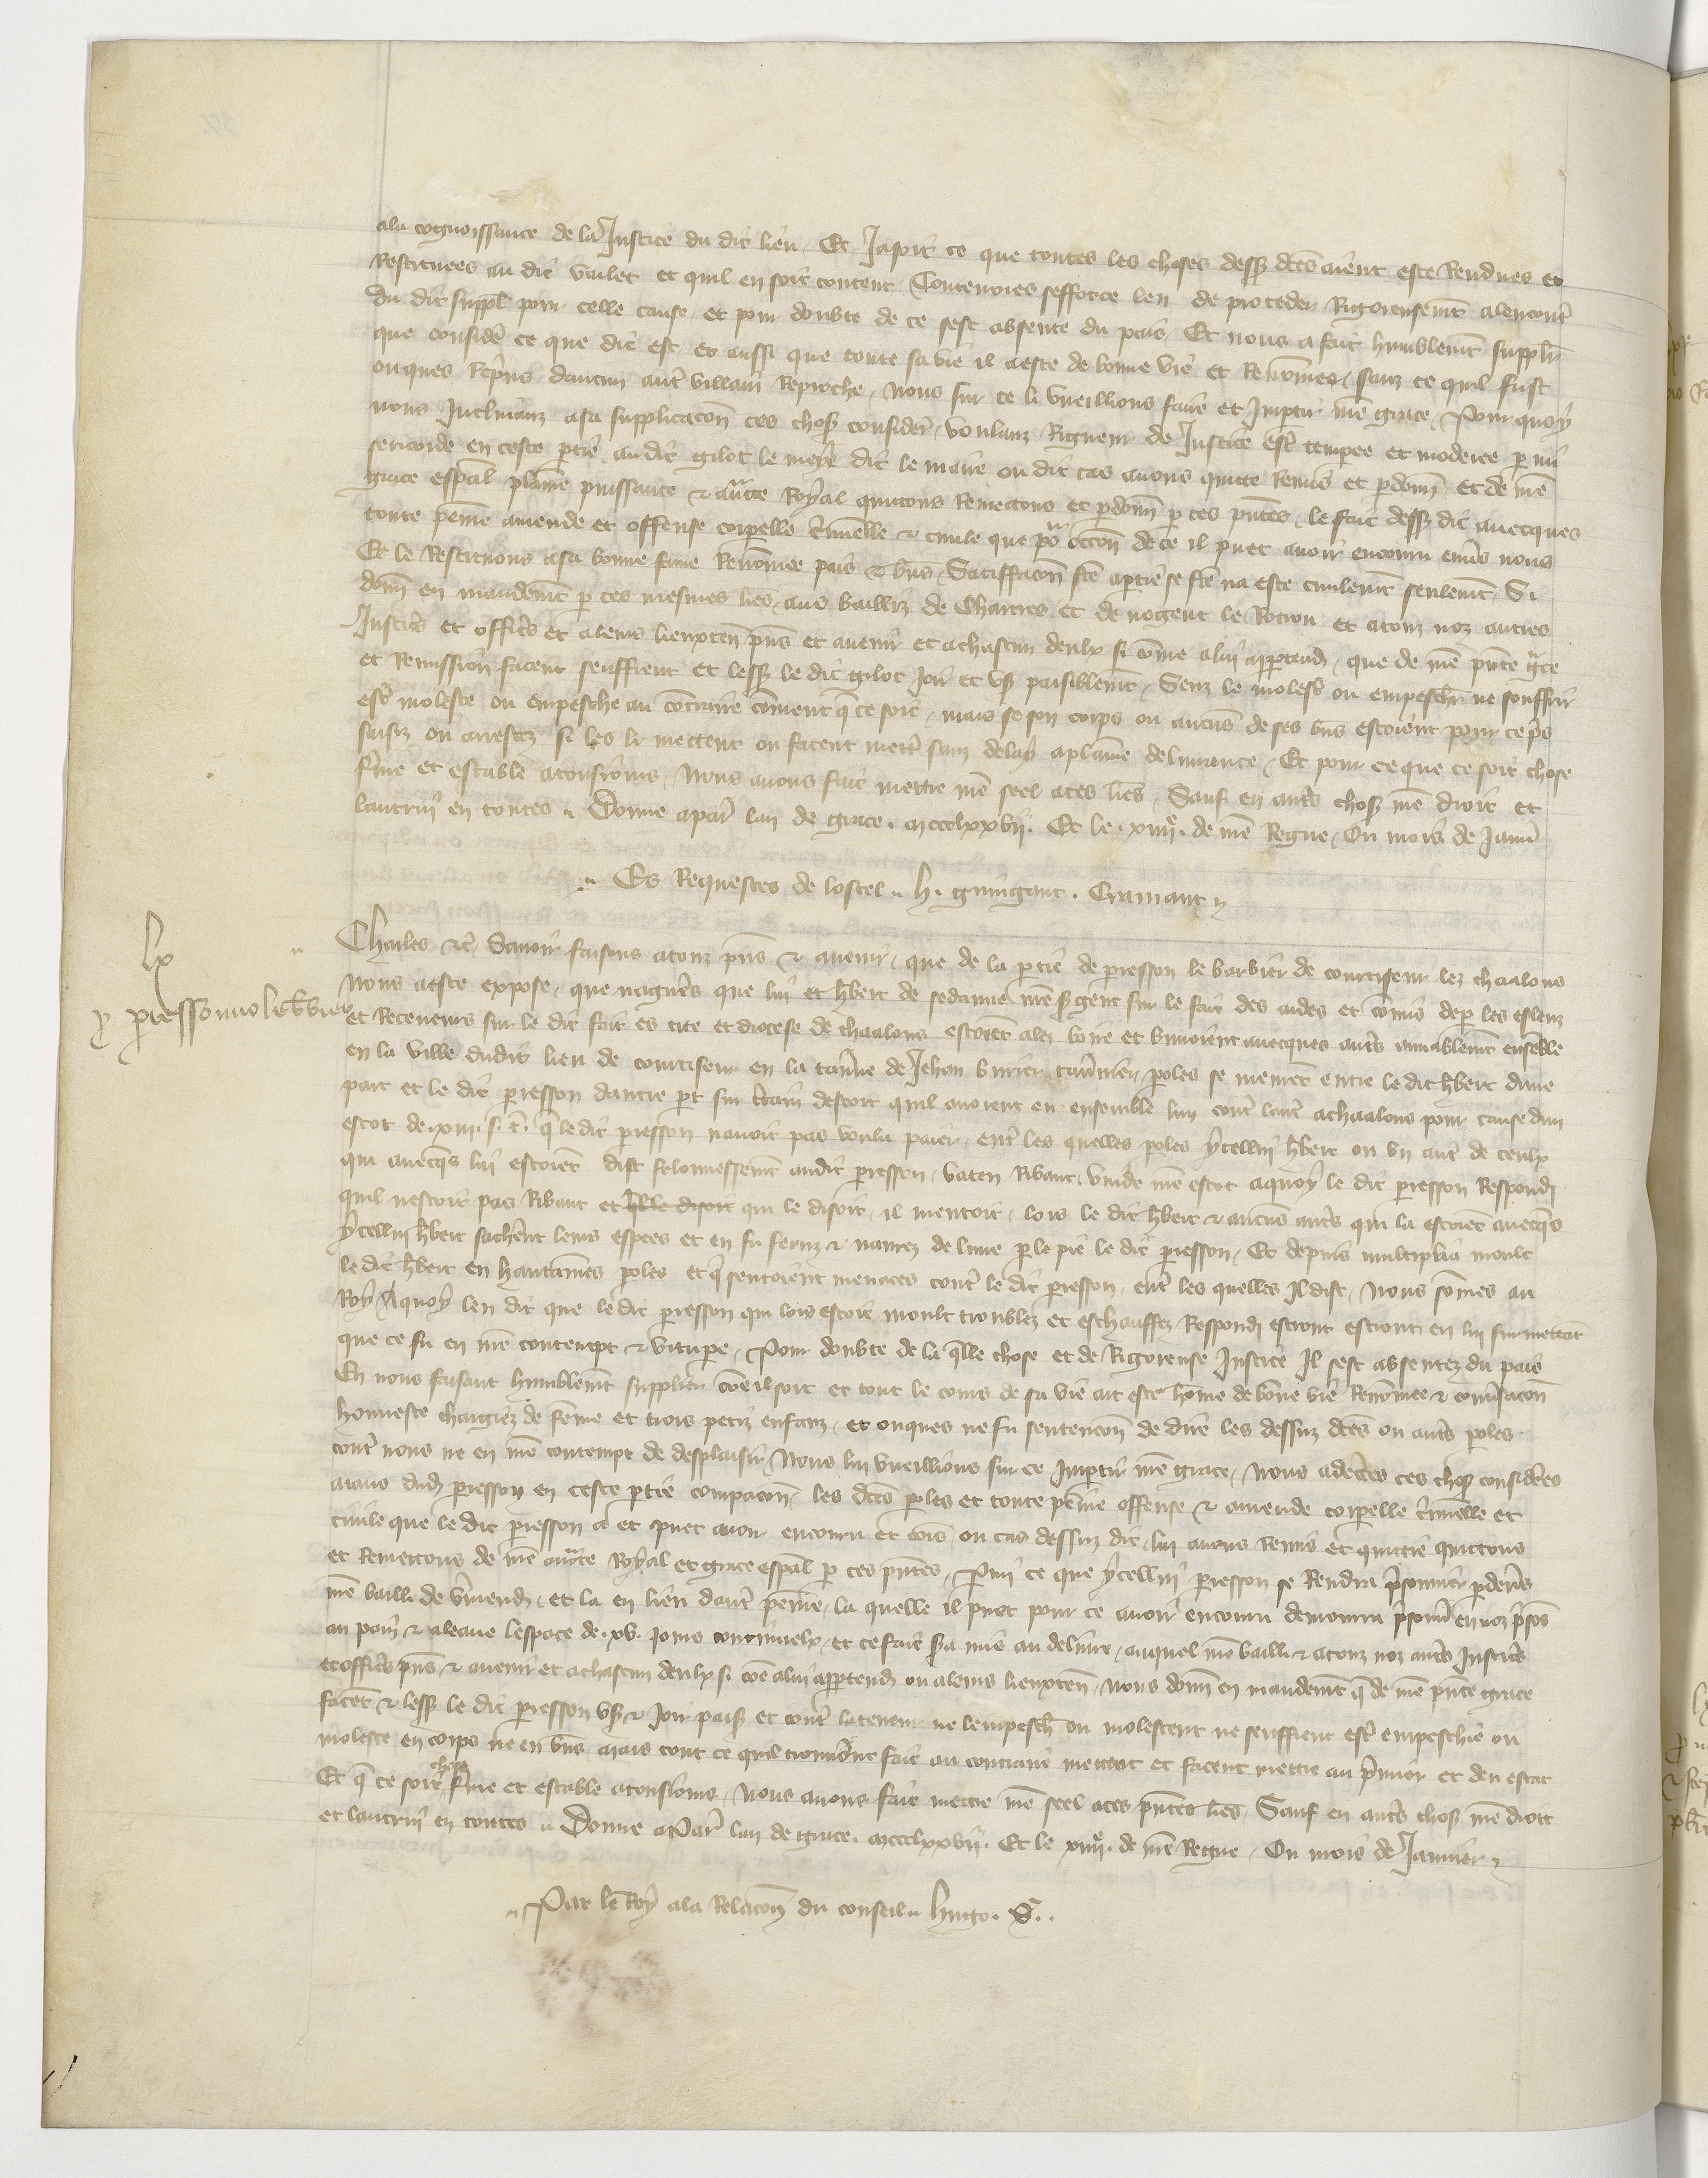 ala cognoissance de la Justice du dit lieu. Et Jasoit ce que toutes les choses dessꝰ dc̄es aient este Rendues et
Restituees au dit vallet et quil en soit content Toutevoies sefforce len de proceder Rigoreusemt̄ alencontr̄
du dit suppl̄ pour celle cause et pour doubte de ce sest absente du pais Et nous a fait humblemt̄ supplir̄
que considere ce que dit est et aussi que toute sa vie il a este de bonne vie et Renom̄ee, sanz ce quil fust
onques Rep̄ns daucun autr̄ villain Reproche, Nous sur ce li vueillions faire et Impartir nr̄e grace, Pour quoy
nous Inclinanz a sa supplicacōn ces chosꝰ considerees, voulanz Rigueur de Justice estr̄ tempree et moderee par mi
sericorde en ceste partie au dit gilot le meyre dit le maire ou dit cas avons quitte Remis et pardōne et de nr̄e
grace esp̄al plaine puissance et auctte Royal quittons Remettons et pardōnōs par ces pn̄tes, le fait dessꝰ dit avecques
toute peine amende et offense corporelle cr̄iminelle et civile que pour occōn de ce il puet avoir encouru envers nous
Et le Restituons a sa bonne fame Renōmee pais et biens, Satisfacōn fc̄e a partie se fc̄e na este civilemt̄ seulemt̄ Si
donn̄ en mandemt̄ par ces mesmes lr̄es, aus bailliz de Chartres et de nogent le Rotrou et a touz noz autres
Justic̄s et offic̄s et a leurs lieuxten̄ pn̄s et avenir et a chascun deulx si cōme a lui appartend̄, que de nr̄e pn̄te gr̄ce
et Remission facent seuffrent et lessꝰ le dit gilot Joir et usꝰ paisiblemt̄, Senz le molestr̄ ou empeschr̄ ne souffrir
estr̄ moleste ou empesche au contraire cōment q̄ ce soit, mais se son corps ou aucūs de ses biens estoient pour ce p̄s
saisiz ou arrestez si les li mettent ou facent mettr̄ sanz delay a plaine delivrance, Et pour ce que ce soit chose
ferme et estable a tousiours, Nous avons fait mettre nr̄e seel a ces lr̄es, Sauf en autrs̄ chosꝰ nr̄e droit et
lautrui en toutes. Donne a par̄ lan de grace. mccclxxvij. Et le. xiiije. de nr̄e Regne, Ou mois de Janvr̄
Es Requestes de lostel. h. guingant. Cramant
lx
pro perressono le barbier
Charles etc̄ Savoir faisons a touz pn̄s et avenir, que de la partie de perresson le barbier de courtiseur lez chaalons
nous a este expose, que nagueres que lui et hb̄ert de sedanne nr̄e sergent sur le fait des aides et cōmis de par les esleuz
et Receveurs sur le dit fait es cite et diocese de chaalons estoiēt alez boire et buvoient avecques autrs̄ amiablemt̄ ensēble
en la ville dudit lieu de courtiseur en la tav̄ne de Jehan tav̄nier, paroles se meurēt entre le dit hb̄ert dune
part et le dit perresson dautre part sur certain descort quil avoient eu ensemble lun contr̄ lautr̄ a chaalons pour cause dun
escot de. xiij. s̄. t̄. q̄ le dit perresson navoit pas voulu paier, entr̄ les quelles paroles ycellui hb̄ert ou un autr̄ de ceulx
qui avecq̄s lui estoiēt dist felonnessemt̄ audit perresson, vaten Ribaut, vuide nr̄e escot aquoy le dit perresson Respond̄
quil nestoit pas Ribaut et qui le disoit, il mentoit, lors le dit hb̄ert et aucūs autrs̄ qui la estoiēt avecq̄s
ycellui hb̄ert sachiērt leurs espees et en fu feruz et navrez de lune par le pie le dit perresson, Et depuis multiplia moult
le dit hb̄ert en hautaines paroles et q̄ sentoient menaces contr̄ le dit perresson, entr̄ les quelles Il dist, Nous sōmes au
Roy Aquoy len dit que le dit perresson qui lors estoit moult troublez et eschauffez Respond̄ estront estront, en lui surmettāt
que ce fu en nr̄e contempt et vitupere, Pour doubte de la q̄lle chose et de Rigoreuse Justice Il sest absentez du pais
En nous faisant humblemt̄ supplier cōe il soit et tout le cours de sa vie ait este hōme de bōne vie Renōmee et conv̄sacōn
honneste chargiez de fēme et trois petiz enfanz, et onques ne fu sentencōn de dire les dessuz dc̄es ou autrs̄ paroles
contr̄ nous ne en nr̄e contempt de desplaisir, Nous lui vueillions sur ce Impartir nr̄e grace, Nous adc̄ertes ces chosꝰ considerees
aians dud̄ perresson en ceste partie compacōn, les dc̄es paroles et toute peine offense et amende corporelle cr̄iminelle et
civile que le dit perresson a et puet avoir encouru et cōis ou cas dessuz dit, lui avons Remis et quittie quittons
et Remettons de nr̄e auctte Royal et grace esp̄al par ces pn̄tes, Parmi ce que ycellui perresson se Rendra prisonnier par devers
nr̄e bailli de v̄mend̄. et la en lieu dautr̄ peine, la quelle il puet pour ce avoir encouru demourra prisonn̄ en noz prisōs
au pain et a leaue lespace de. xv. jours continuelx, et ce fait sera mis au delivre, auquel nr̄e bailli et a touz noz autrs̄ Justic̄s
et offic̄s pn̄s et avenir et a chascun deulx si cōe a lui appartend̄ ou a leurs lieuxten̄, Nous donn̄ en mandemt̄ q̄ de nr̄e pn̄te grace
facēt et lessꝰ le dit perresson usꝰ et Joir paisꝰ et contr̄ la teneur ne lempeschēt ou molestent ne seuffrent estr̄ empeschie ou
moleste en corps ne en biens, Mais tout ce quil trouveront fait au contraire mettent et facent mettre au premier et deu estat
Et q̄ ce soit chose ferme et estable a tousiours, Nous avons fait mettre nr̄e seel a ces pn̄tes lr̄es, Sauf en autrs̄ chosꝰ nr̄e droit
et lautrui en toutes. Donne a Par̄ lan de grace. mccclxxvij. Et le xiiije. de nr̄e Regne, Ou mois de Janvier
Par le Roy a la Relacōn du conseil. hugo.